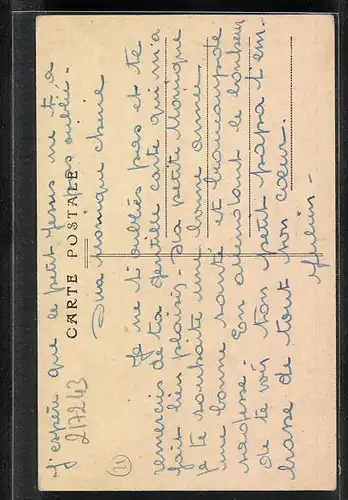 J'espère que le petit Jesus ne t'a
pas oublié.
CARTE POSTALE
217243
Ma monique cherie
Je ne t'oubliés pas et te
remercis de ta gentille carte qui m'a
fait bien plaisir. Ma petite Monique
je te souhaite une bonne année
une bonne santé et beaucoup de
sagesse. En attendant le bonheur
de te voir ton petit papa t'em-
brasse de tout son cœur.
21